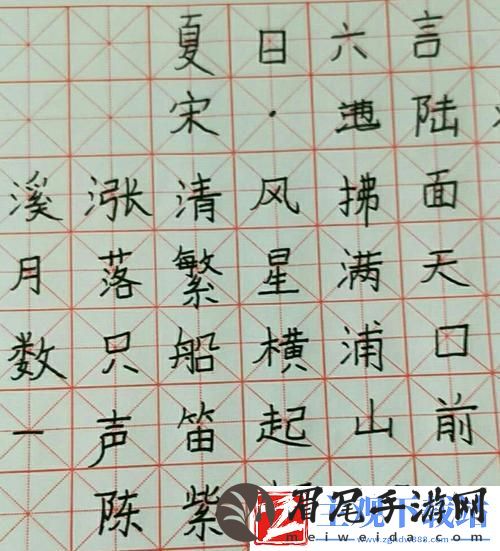 夏日六言
宋·陆
溪涨清风拂面
月落繁星满天
数只船横浦口
一声笛起山前
陈紫
眉尾手游网
meiweida.com